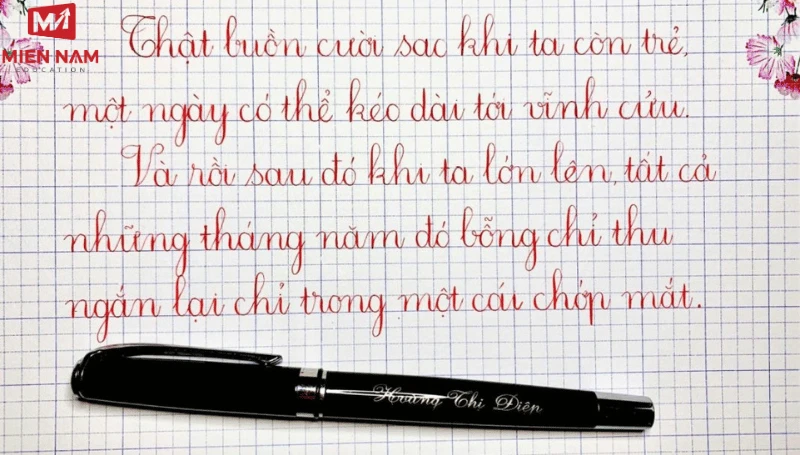 MIEN NAM
EDUCATION
Thật buồn cười sao khi ta còn trẻ,
một ngày có thể kéo dài tới vĩnh cửu.
Và rồi sau đó khi ta lớn lên, tất cả
những tháng năm đó bỗng chỉ thu
ngắn lại chỉ trong một cái chớp mắt.
Hoàng Thị Điệp